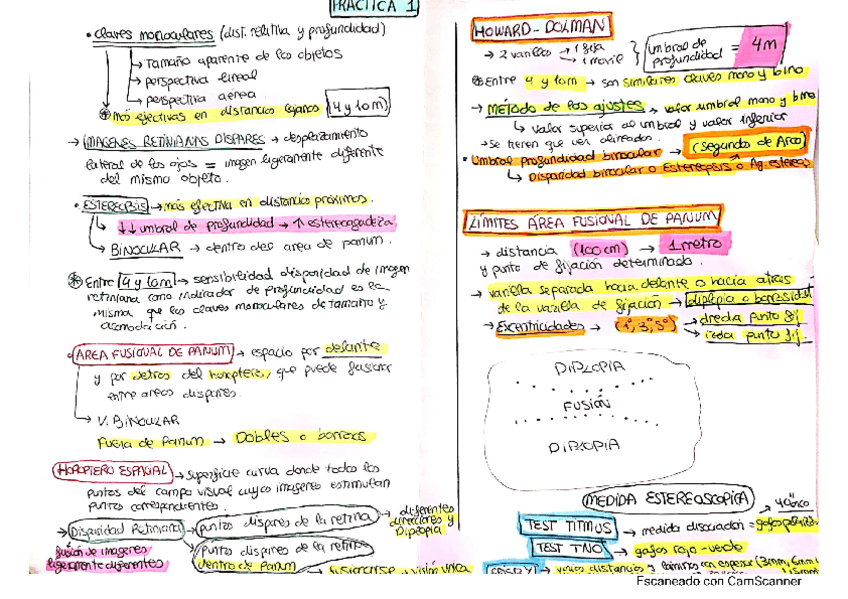 PRÁCTICA 1
• Claves monoculares (dist. relativa y profundidad)
→ Tamaño aparente de los objetos
→ perspectiva lineal
→ perspectiva aérea
⊛ Más efectivas en distancias lejanas (4 y 10 m)
→ IMÁGENES RETINIANAS DISPARES → desplazamiento
lateral de los ojos = imagen ligeramente diferente
del mismo objeto.
• ESTEREOPSIS → más efectiva en distancias próximas.
↓↓ umbral de profundidad → ↑ estereoagudeza
BINOCULAR → dentro del area de panum.
⊛ Entre 4 y 10m → sensibilidad disparidad de imagen
retiniana como indicador de profundidad es la
misma que las claves monoculares de tamaño y
acomodación.
• AREA FUSIONAL DE PANUM → espacio por delante
y por detras del horoptero, que puede fusionar
entre areas dispares.
V. BINOCULAR
Fuera de Panum → Dobles o borrosas
HOROPTERO ESPACIAL → superficie curva donde todos los
puntos del campo visual cuyas imagenes estimulan
puntos correspondientes.
→ Disparidad Retiniana → puntos dispares de la retina → diferentes
direcciones y
Diplopia
fusión de imagenes
ligeramente diferentes
puntos dispares de la retina
dentro de Panum → fusionarse → visión única
HOWARD - DOLMAN
→ 2 varillas → 1 fija
→ 1 movil
umbral de
profundidad = 4m
⊛ Entre 4 y 10m → son similares claves mono y bino
→ Método de los ajustes → valor umbral mono y bino
↳ valor superior al umbral y valor inferior
→ Se tienen que ver alineadas.
• Umbral profundidad binocular → (Segundo de Arco)
↳ Disparidad binocular o Estereopsis o Ag. estereo
LÍMITES ÁREA FUSIONAL DE PANUM
→ distancia (100 cm) → 1 metro
y punto de fijación determinado.
→ varilla separada hacia delante o hacia atras
de la varilla de fijación → diplopia o borrosidad
→ Excentricidades → (1°, 3°, 5°) → drecha punto fij
→ izda punto fij.
DIPLOPIA
FUSIÓN
DIPLOPIA
MEDIDA ESTEREOSCOPICA → 40
TEST TITMUS → medida disociador = gafas
TEST TNO → gafas rojo-verde
→ varias distancias y laminas con espesor (3mm, 6mm
Escaneado con CamScanner